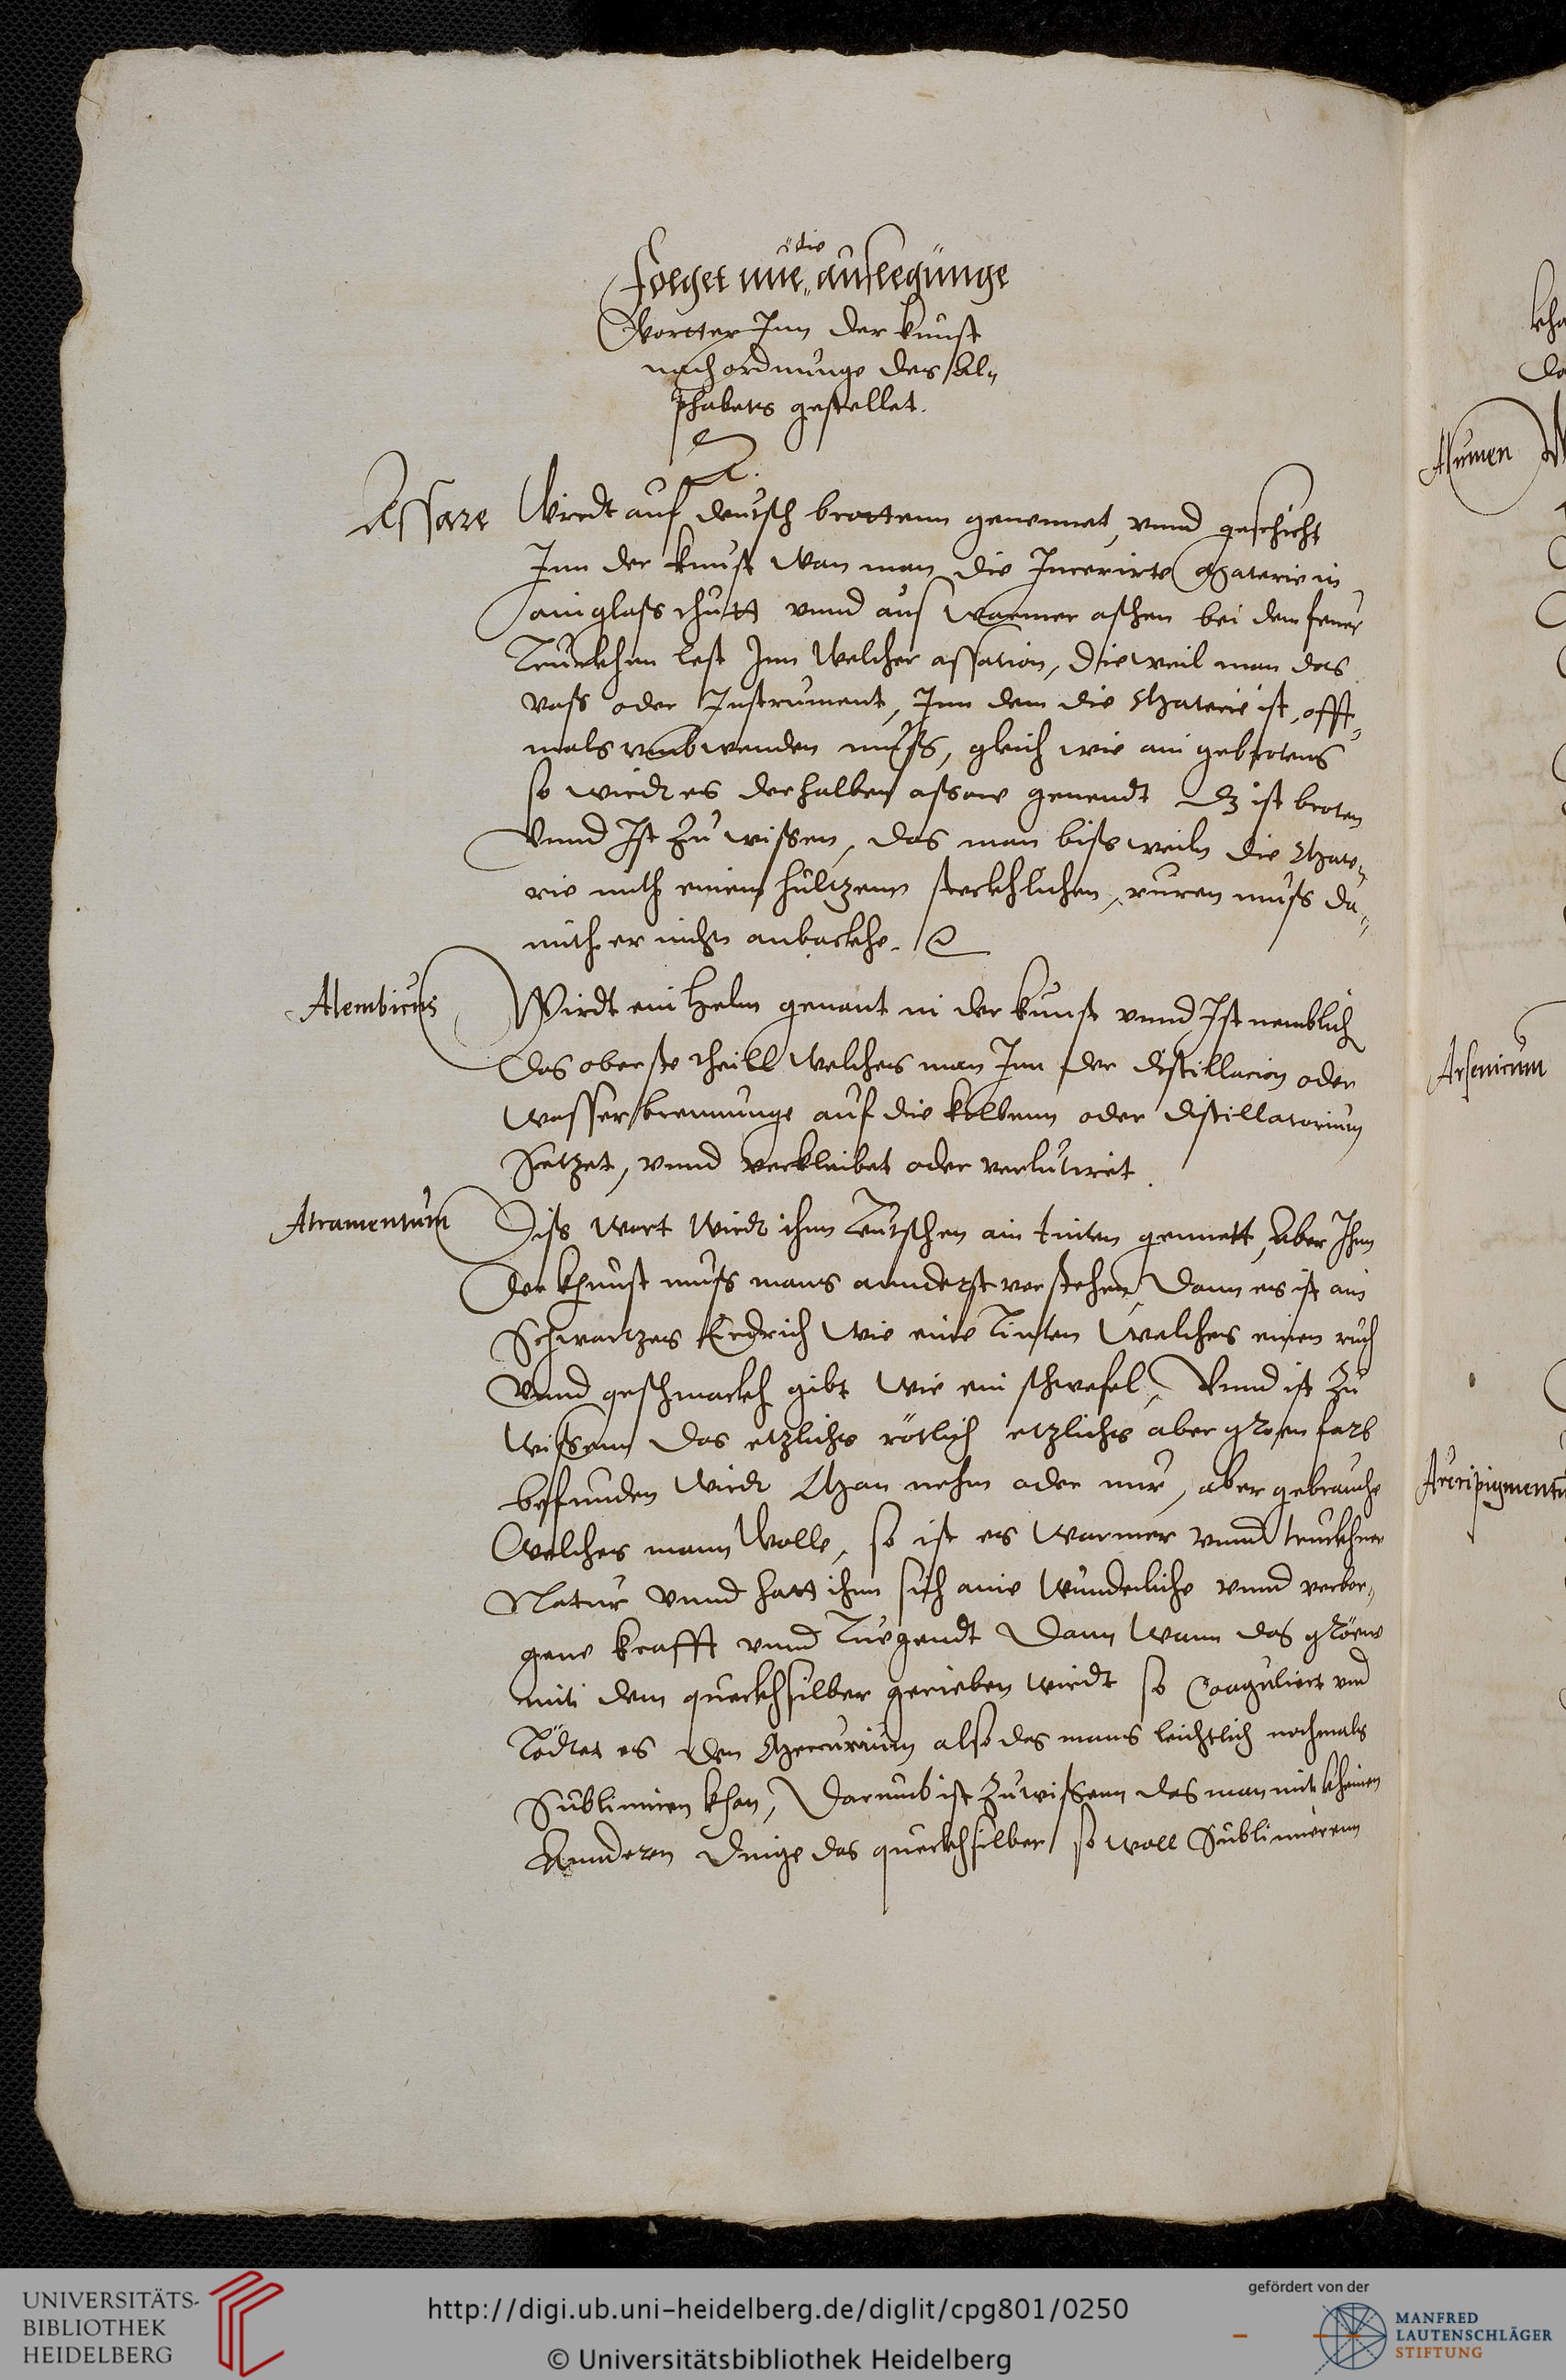 die
Folget nue auslegunge
Wortter Inn der kunst
nach ordnunge des Al-
phabets gestellet.
A.
Assare Wirdt auf deutsch brottenn genennet, vnnd geschicht
Inn der kunst wan man die Incerirte Materie in
ain glass thutt vnnd auf warmer aschen bei dem feuer
Truckhen lest Inn welcher assation, dieweil man das
vass oder Instrument, Inn dem die Materie ist, offt-
mals vmbwenden muss, gleich wie ain gebrotens
so wirdt es derhalben genendt dz ist broten
Vnnd Ist zu wissen, das man bissweiln die Mate-
rie mith einem hültzenn steckhlichen, ruren muss da-
mith er nicht anbackhe.
Alembicus Wirdt ein Helm genant in der kunst vnnd Ist nemblich
Das oberste theill welches man Inn der distillacion oder
wasserbrennunge auf die kolbenn oder distillatorium
Setzet, vnnd verkleibet oder verlutiret.
Atramentum Diss wort wirdt ihnn Teutschen ain tinten gennett, Aber Ihnn
der khunst muss mans annderst verstehen, Dann es ist ain
Schwartzes Erdrich wie eine Tinten welches einen ruch
Vnnd geschmackh gibt wie ein schwefel, Vnnd ist zu
wissenn das etzliches rötlich etzliches aber groen farb
befunden wirdt Man nehm oder nur, aber gebrauche
Welches mann wolle, so ist es warmer vnnd truckhner
Natur vnnd hatt ihnn sich aine wunderliche vnnd verbor-
gene krafft vnnd Tuegendt Dann wann das gröene
mit dem queckhsilber gerieben wirdt so Coaguliert vnd
Tödtet es den Mercurium also das mans leichtlich nochmals
Sublimiren khan, Darumb ist zuwissenn das man mit kheinen
Annderen dinge das queckhsilber so woll Sublimierenn
Alumen
Arsenicum
Auripigmentu
UNIVERSITÄTS-
BIBLIOTHEK
HEIDELBERG
http://digi.ub.uni-heidelberg.de/diglit/cpg801/0250
© Universitätsbibliothek Heidelberg
gefördert von der
MANFRED
LAUTENSCHLÄGER
STIFTUNG